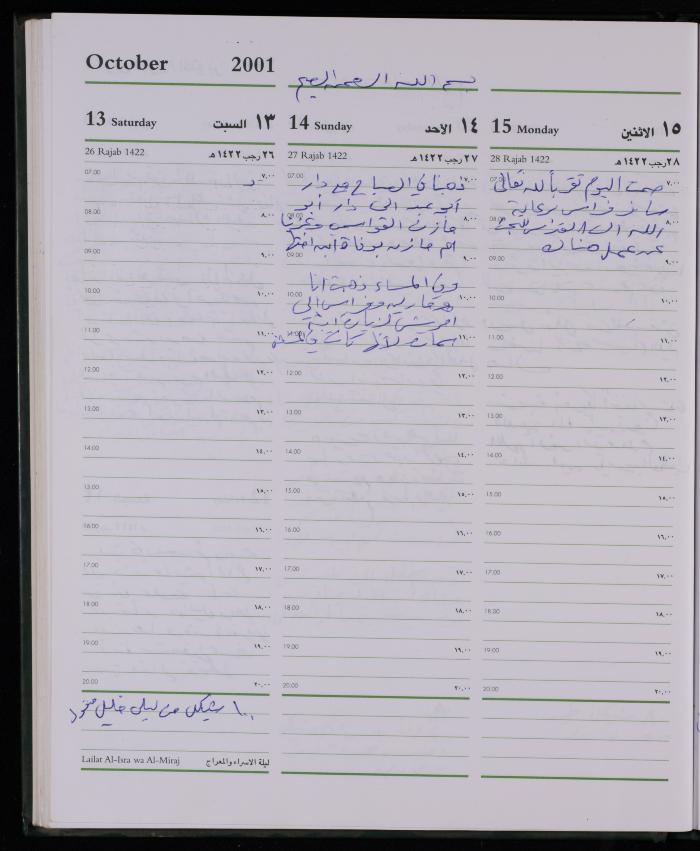 October 2001
بسم الله الرحمن الرحيم
13 Saturday ١٣ السبت
26 Rajab 1422 ٢٦ رجب ١٤٢٢هـ
07.00 ٧,٠٠
08.00 ٨,٠٠
09.00 ٩,٠٠
10.00 ١٠,٠٠
11.00 ١١,٠٠
12.00 ١٢,٠٠
13.00 ١٣,٠٠
14.00 ١٤,٠٠
15.00 ١٥,٠٠
16.00 ١٦,٠٠
17.00 ١٧,٠٠
18.00 ١٨,٠٠
19.00 ١٩,٠٠
20.00 ٢٠,٠٠
١٠٠ شيكل من ليلى خليل
Lailat Al-Isra wa Al-Miraj ليلة الاسراء والمعراج
14 Sunday ١٤ الاحد
27 Rajab 1422 ٢٧ رجب ١٤٢٢هـ
07.00 ٧,٠٠
ذهبنا في الصباح مع دار
08.00 ٨,٠٠
أبو عبد الى دار أبو
مازن القواسمي وعزينا
09.00 ٩,٠٠
ام مازن بوفاة ابن اختها
وفي المساء ذهبت انا
10.00 ١٠,٠٠
وفراس الى
لزيارة ابنة
11.00 ١١,٠٠
لأنها كانت في
12.00 ١٢,٠٠
13.00 ١٣,٠٠
14.00 ١٤,٠٠
15.00 ١٥,٠٠
16.00 ١٦,٠٠
17.00 ١٧,٠٠
18.00 ١٨,٠٠
19.00 ١٩,٠٠
20.00 ٢٠,٠٠
15 Monday ١٥ الاثنين
28 Rajab 1422 ٢٨ رجب ١٤٢٢هـ
07.00 ٧,٠٠
صمت اليوم تقرباً لله تعالى
سافر فراس برعاية
08.00 ٨,٠٠
الله الى القدس للبحث
عن عمل هناك
09.00 ٩,٠٠
10.00 ١٠,٠٠
11.00 ١١,٠٠
12.00 ١٢,٠٠
13.00 ١٣,٠٠
14.00 ١٤,٠٠
15.00 ١٥,٠٠
16.00 ١٦,٠٠
17.00 ١٧,٠٠
18.00 ١٨,٠٠
19.00 ١٩,٠٠
20.00 ٢٠,٠٠